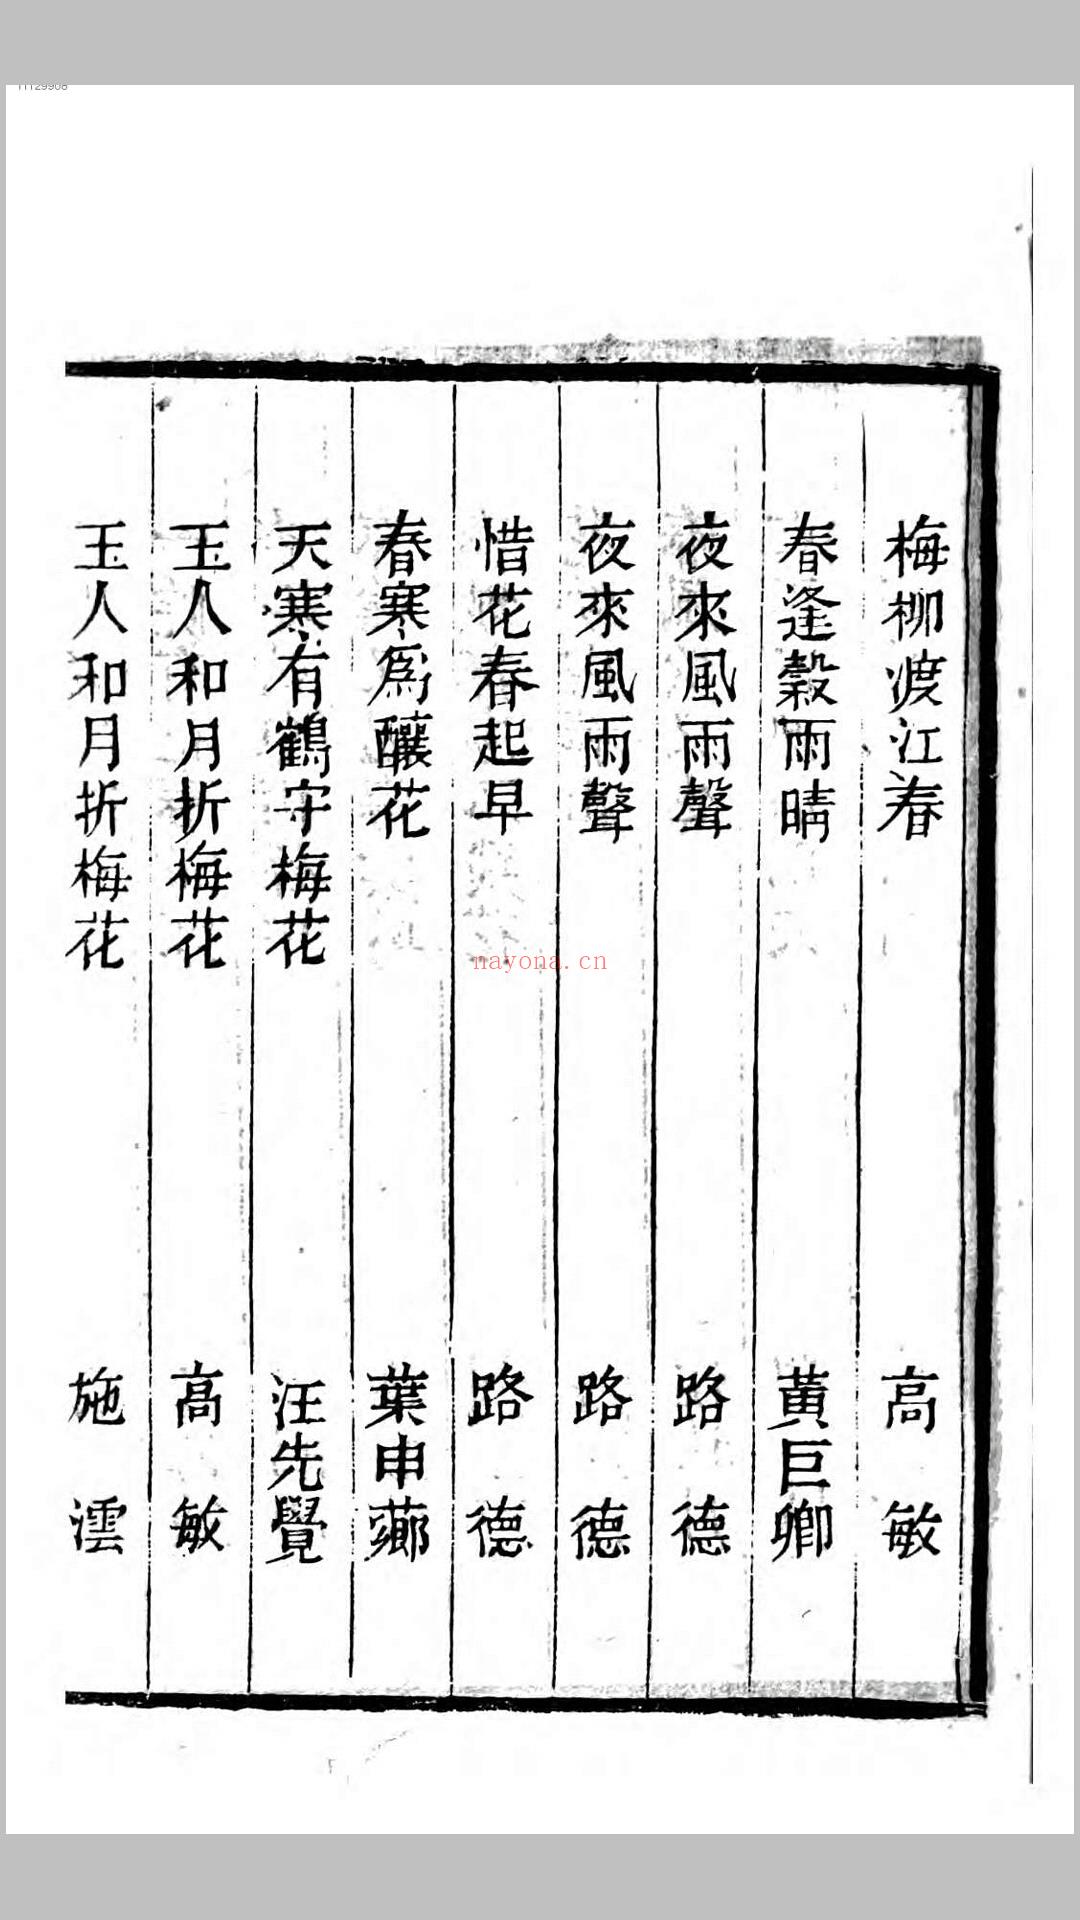 11129908
梅柳渡江春 高敏
春逢榖雨晴 黄巨卿
夜來風雨聲 路德
夜來風雨聲 路德
惜花春起早 路德
春寒爲釀花 葉申薌
天寒有鶴守梅花 汪先覺
玉人和月折梅花 高敏
玉人和月折梅花 施澐
nayona.cn